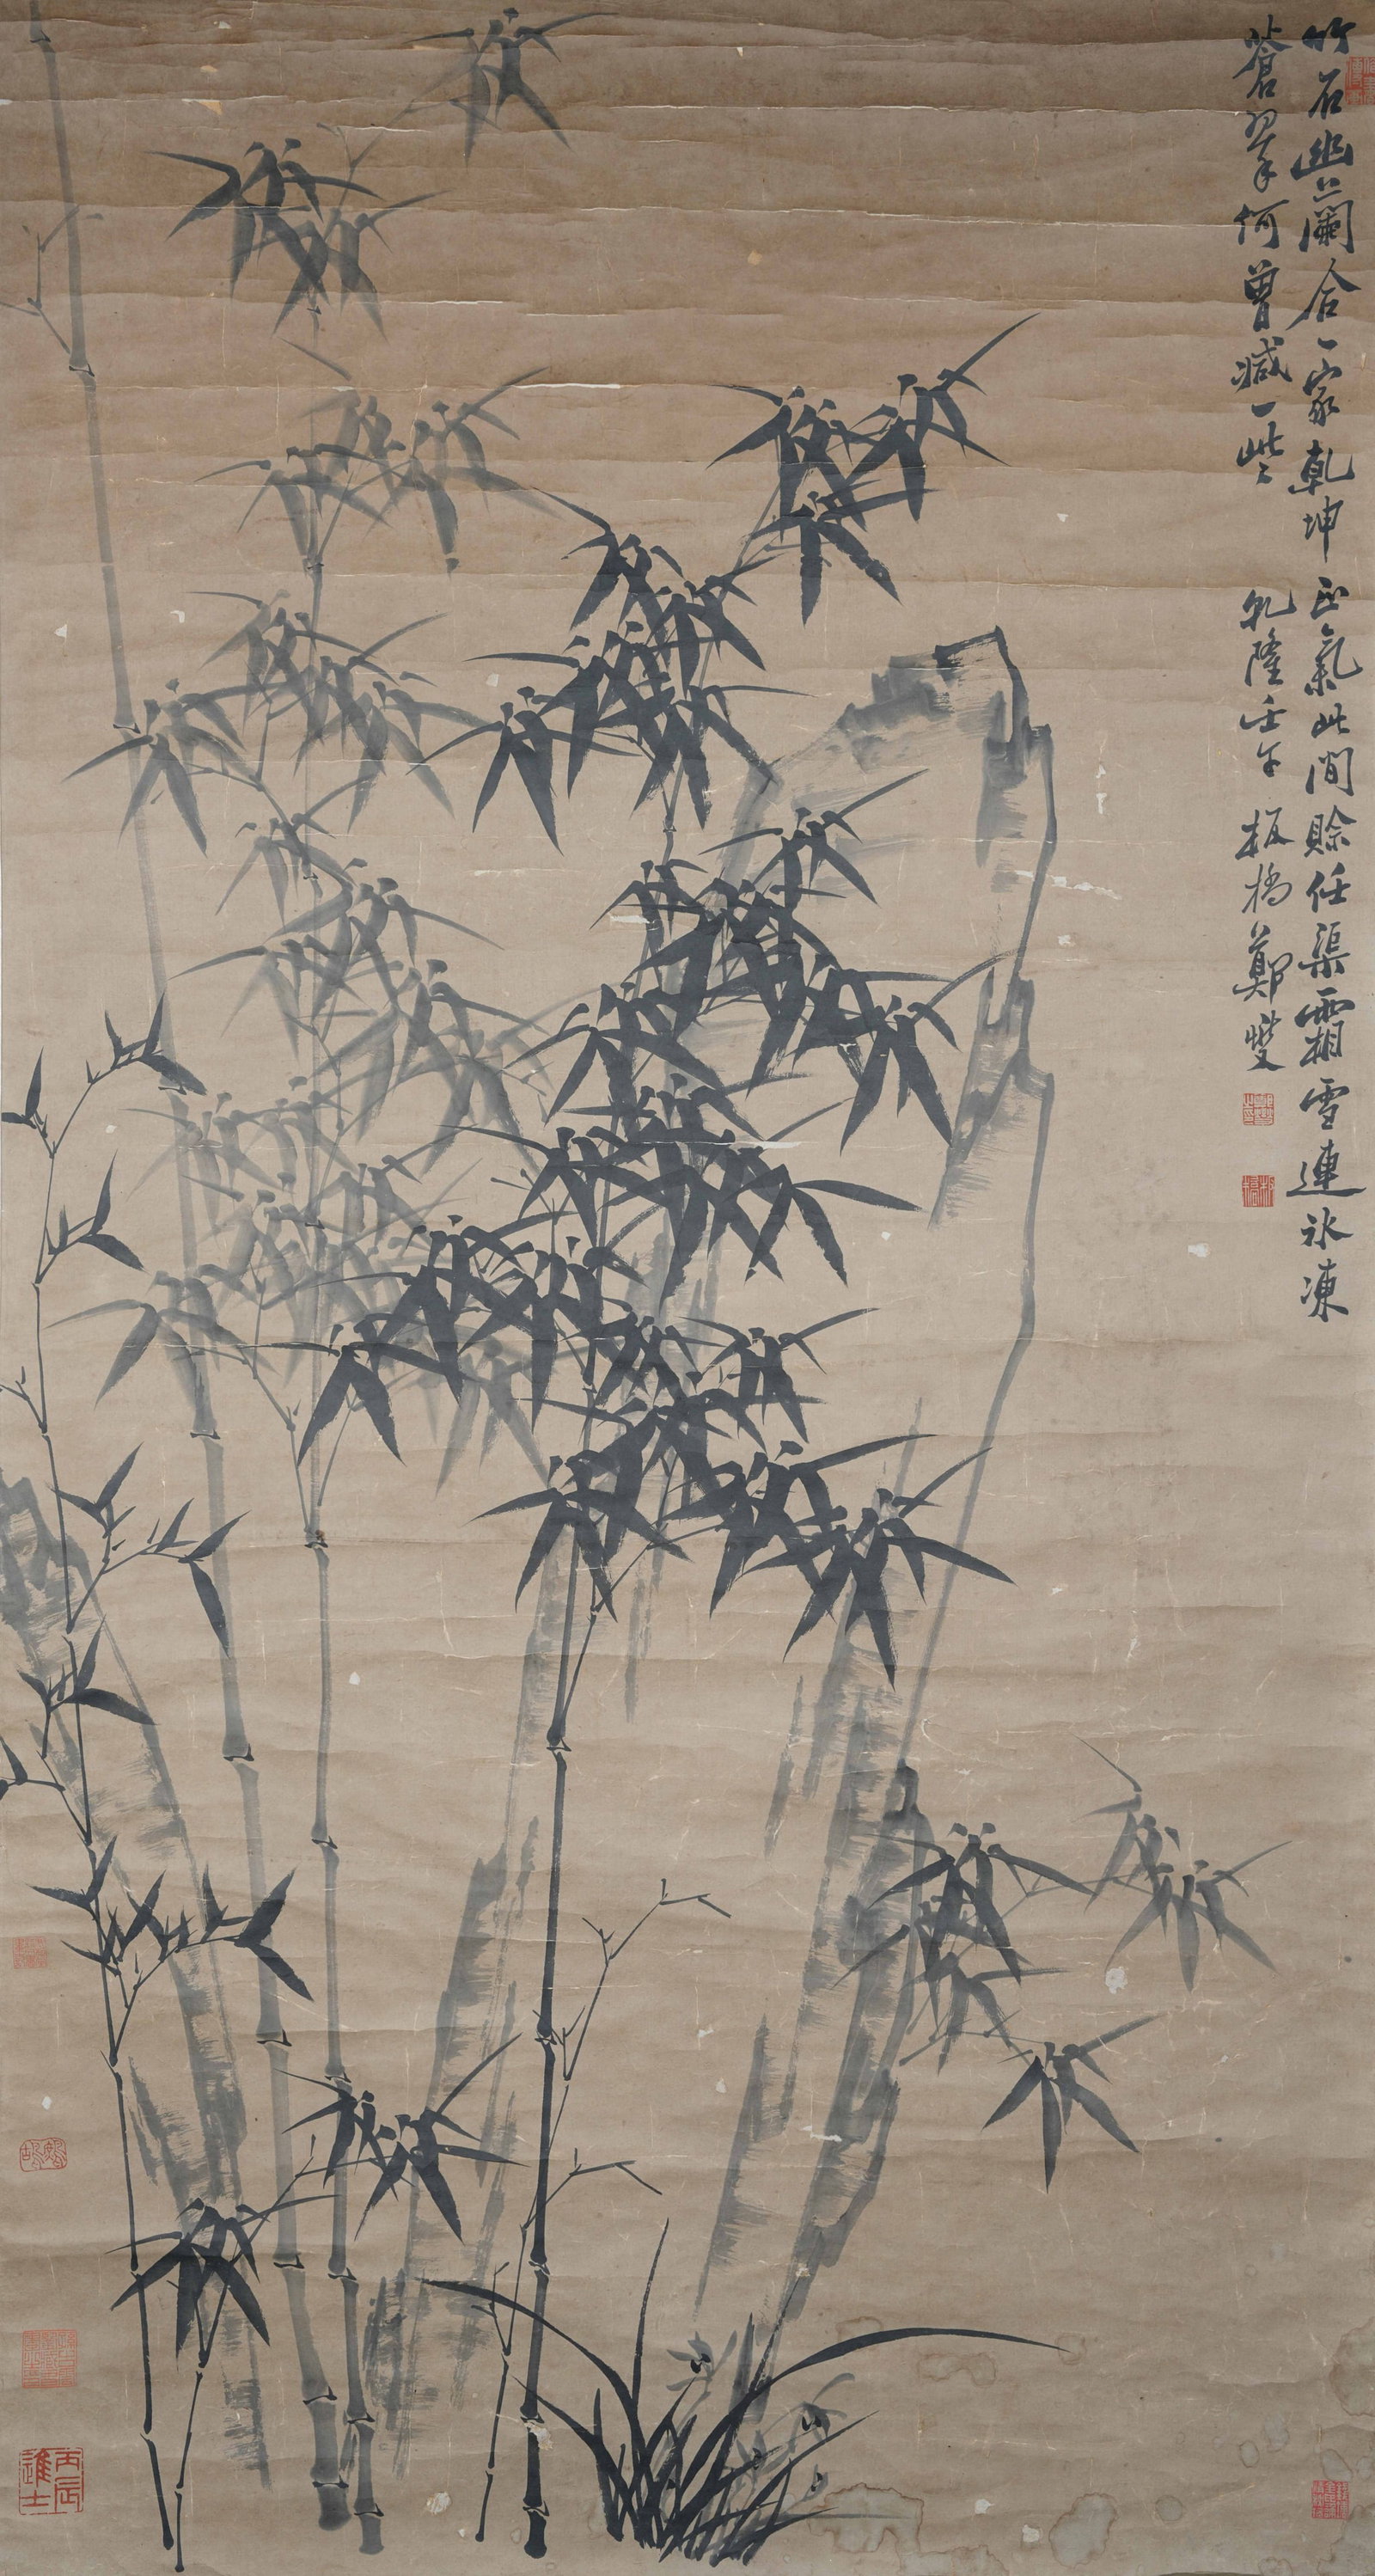 竹石幽蘭合一家乾坤正氣此間賒任渠霜雪連氷凍
蒼翠何曾減一些 乾隆壬午板橋鄭燮
丙辰進士